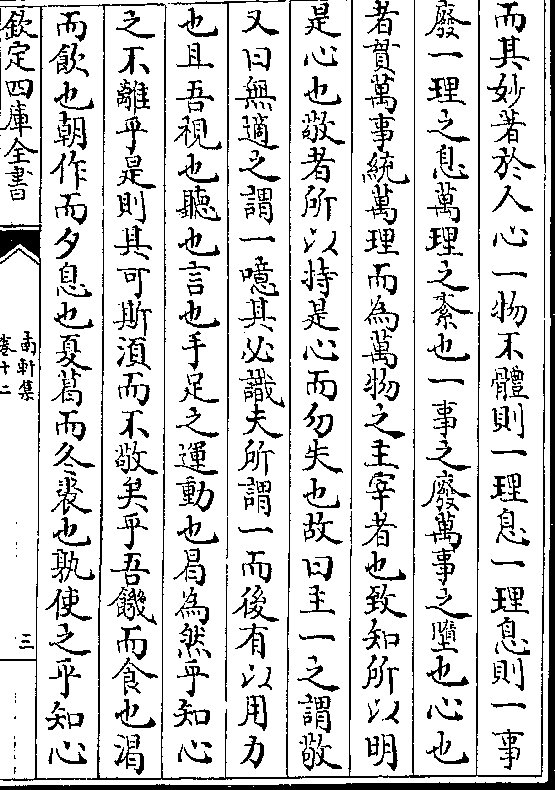 而其妙著於人心一物不體則一理息一理息則一事
廢一理之息萬理之紊也一事之廢萬事之墮也心也
者貫萬事統萬理而為萬物之主宰者也致知所以明
是心也敬者所以持是心而勿失也故曰主一之謂敬
又曰無適之謂一噫其必識夫所謂一而後有以用力
也且吾視也聽也言也手足之運動也曷為然乎知心
之不離乎是則其可斯須而不敬矣乎吾饑而食也渴
而飲也朝作而夕息也夏葛而冬裘也孰使之乎知心
欽定四庫全書
南軒集
卷十二
三